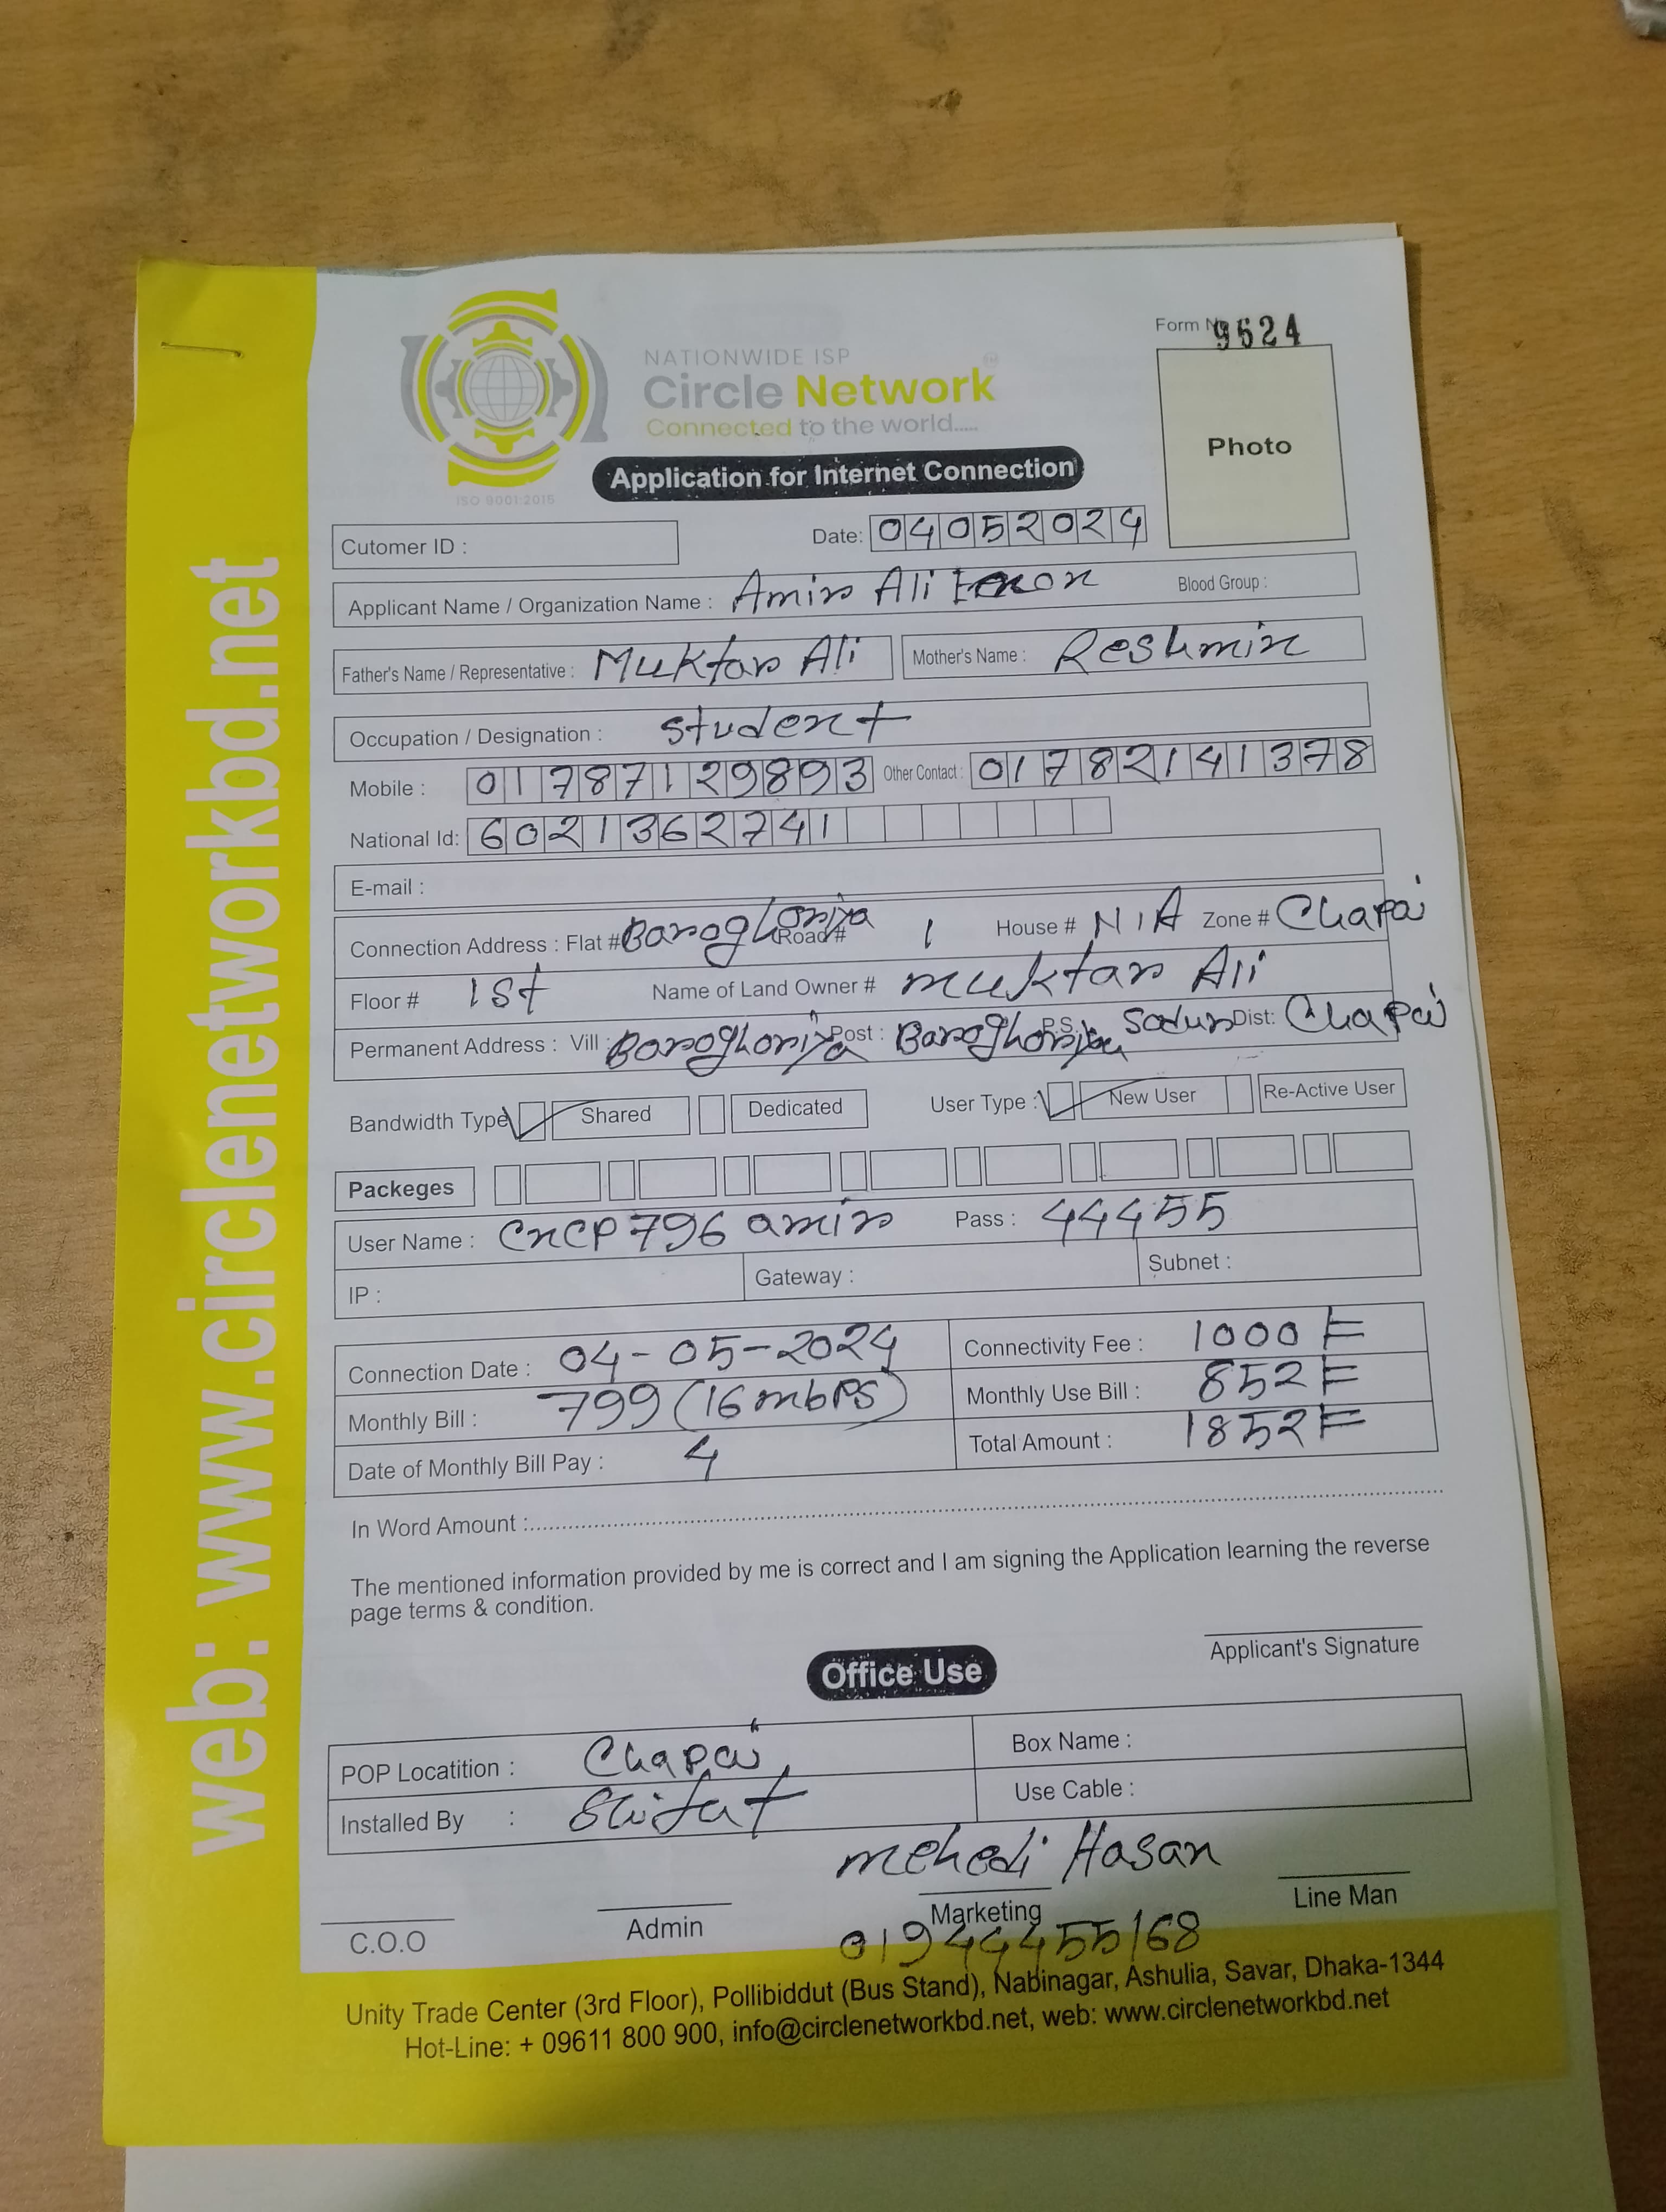 Form N 9624
NATIONWIDE ISP
Circle Network
Connected to the world.....
ISO 9001:2015
Photo
Application for Internet Connection
Cutomer ID :
Date: 04052024
Applicant Name / Organization Name : Amir Ali Blood Group :
Father's Name / Representative : Muktar Ali Mother's Name : Reshmin
Occupation / Designation : student
Mobile : 01787129893 Other Contact : 01782141378
National Id: 6021362741
E-mail :
Connection Address : Flat # Baroghoriya Road # 1 House # N/A Zone # Chapai
Floor # 1st Name of Land Owner # muktar Ali
Permanent Address : Vill : Baroghoriya Post : Baroghoriya P.S: Sadur Dist: Chapai
Bandwidth Type Shared Dedicated User Type : New User Re-Active User
Packeges
User Name : CnCP796 amir Pass : 44455
IP : Gateway : Subnet :
Connection Date : 04-05-2024 Connectivity Fee : 1000/=
Monthly Bill : 799 (16mbPS) Monthly Use Bill : 852/=
Date of Monthly Bill Pay : 4 Total Amount : 1852/=
In Word Amount :
The mentioned information provided by me is correct and I am signing the Application learning the reverse
page terms & condition.
Applicant's Signature
Office Use
POP Locatition : Chapai Box Name :
Installed By : Use Cable :
mehedi Hasan
C.O.O Admin Marketing Line Man
01944455168
Unity Trade Center (3rd Floor), Pollibiddut (Bus Stand), Nabinagar, Ashulia, Savar, Dhaka-1344
Hot-Line: + 09611 800 900, info@circlenetworkbd.net, web: www.circlenetworkbd.net
web: www.circlenetworkbd.net